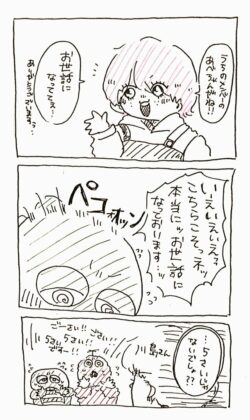 うちのメンバーの
あべちゃんがね!!
お世話に
なってて…
ありがとうございます
いえいえいえっ
こちらこそっ
本当にッお世話に
なっております…ッ
ペコォォッ
…5さいじゃ
ないでしょ??
川島さん
ごーさい!!
さい!!
5さい5さい
でーす!!